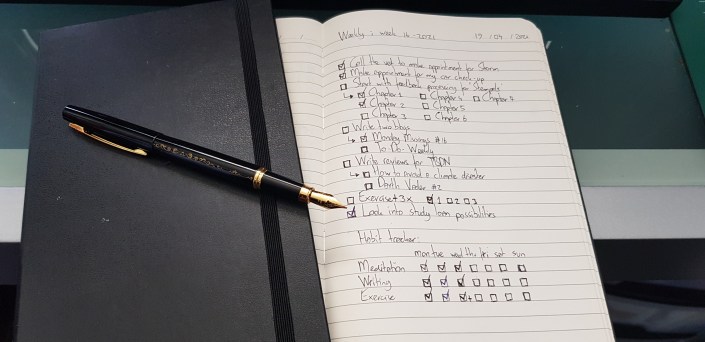 Weekly : week 16 - 2021 19 / 04 / 2021
Call the vet to make appointment for Storm
Make appointment for my car check-up
Start with feedback processing for
Chapter 1 Chapter 4 Chapter 7
Chapter 2 Chapter 5
Chapter 3 Chapter 6
Write two blogs
Monday Musings #16
To Do - Weekly
Write reviews for
How to avoid a climate disaster
Darth Vader #2
Exercise 3x 1 2 3
Look into study loan possibilities
Habit tracker:
mon tue wed thu fri sat sun
Meditation
Writing
Exercise